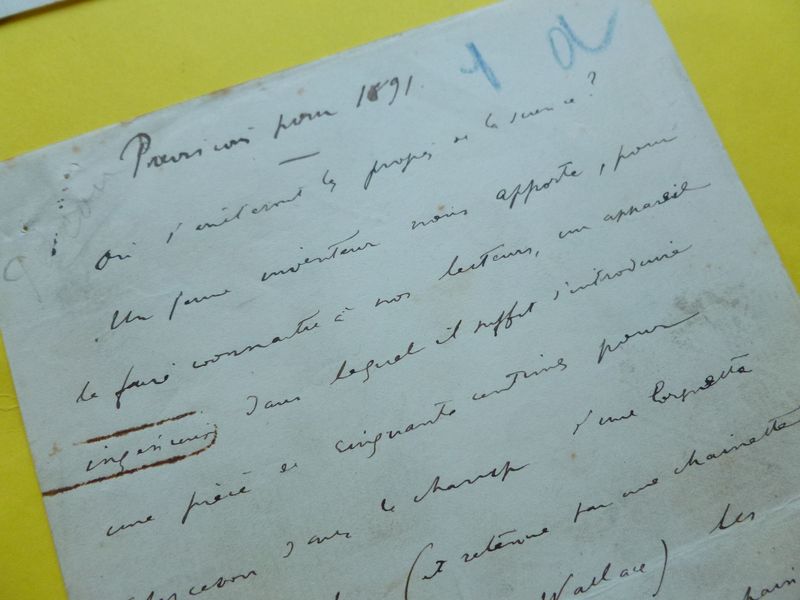 1 d
Prévisions pour 1891.
Où s'arrêteront les progrès de la science?
Un jeune inventeur nous apporte, pour
le faire connaître à nos lecteurs, un appareil
ingénieux dans lequel il suffit d'introduire
une pièce de cinquante centimes pour
apercevoir dans le champ d'une lorgnette
(et retenue par une chainette
Wallace) les